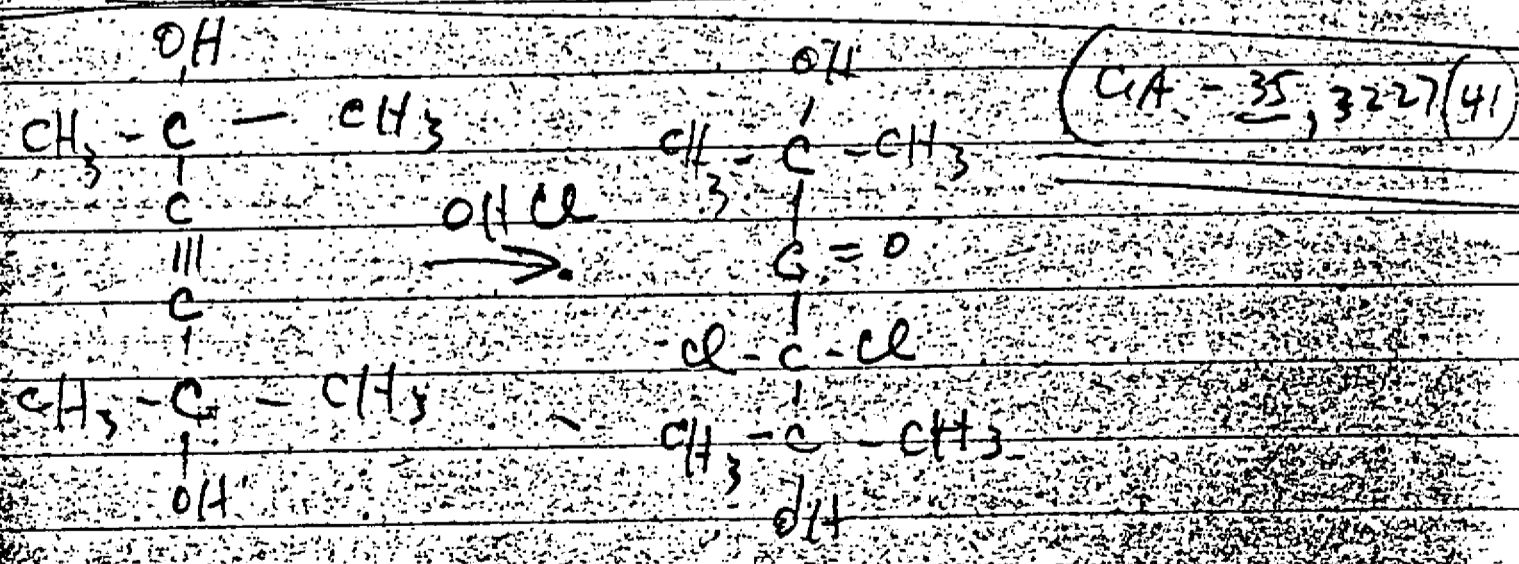 OH
CH3 - C - CH3
C
|||
C
CH3 - C - CH3
OH
OHCl
→
OH
CH3 - C - CH3
C = O
Cl - C - Cl
CH3 - C - CH3
OH
(CA - 35, 3227 (41)